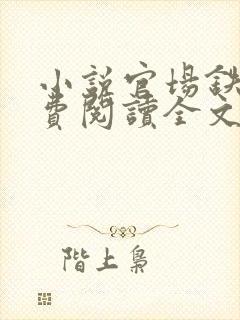 小説官場鉄
費閱讀全文
階上梟